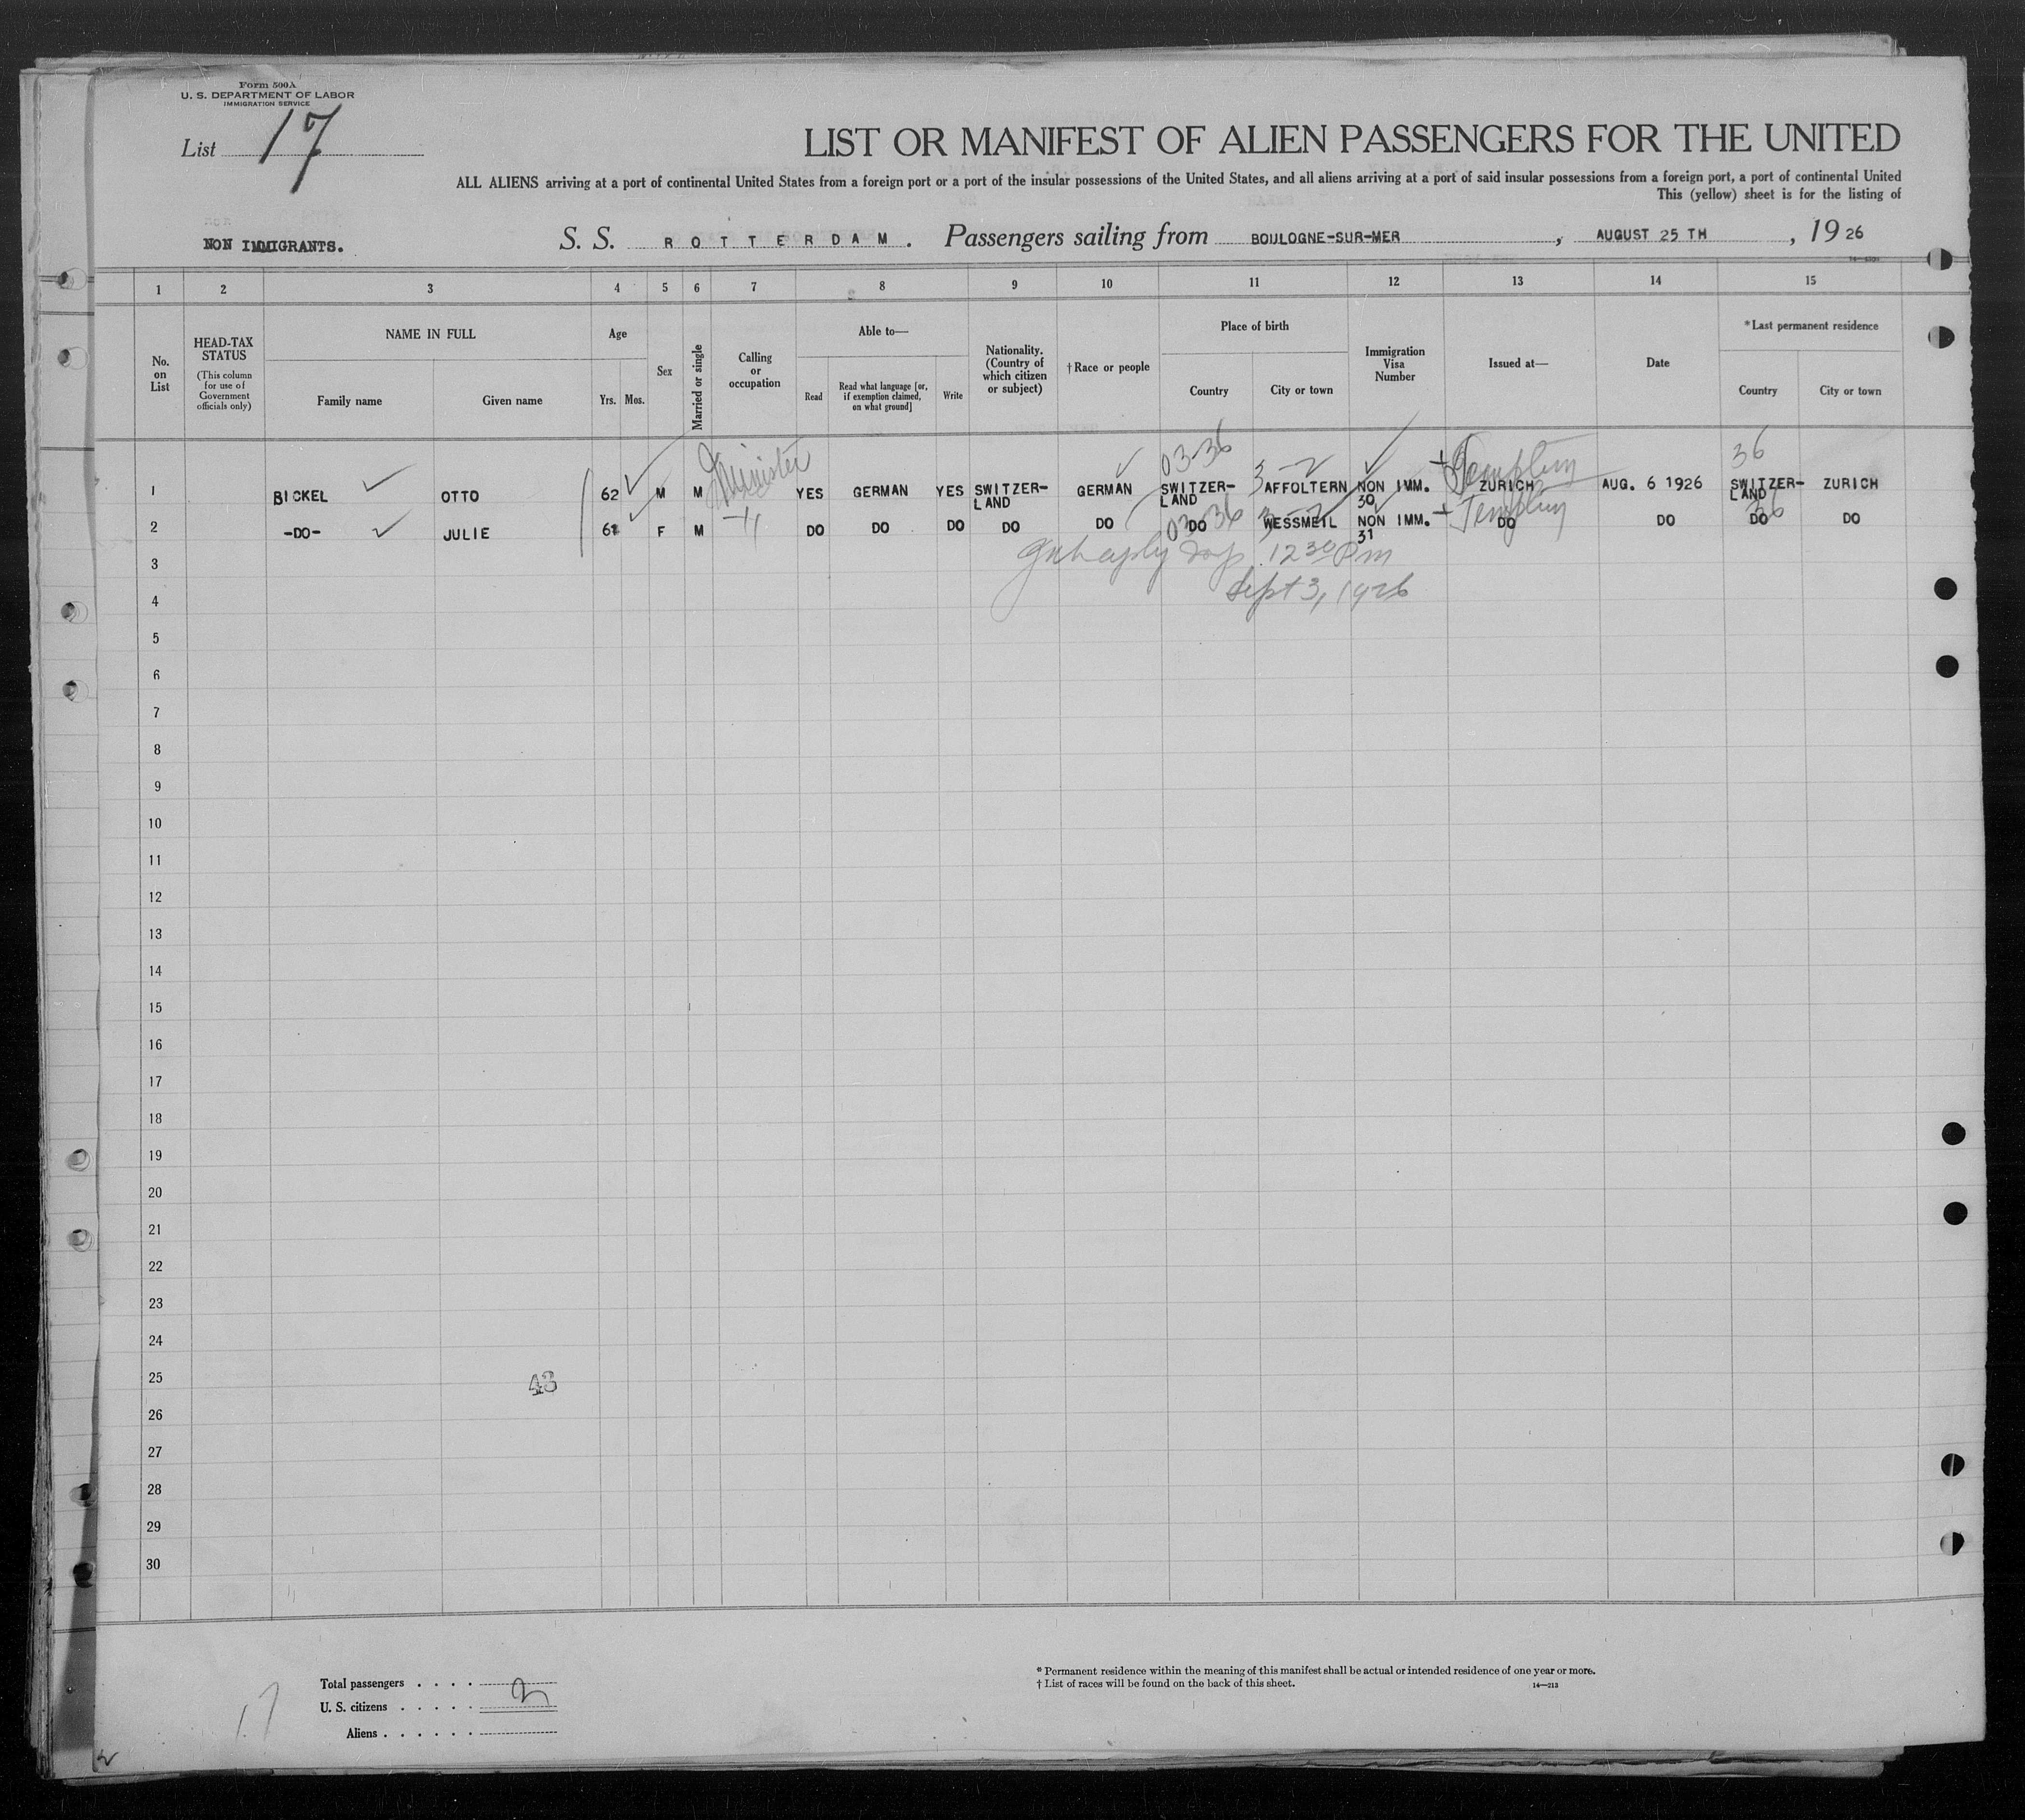 Form 500A
U. S. DEPARTMENT OF LABOR
IMMIGRATION SERVICE
List 17
LIST OR MANIFEST OF ALIEN PASSENGERS FOR THE UNITED
ALL ALIENS arriving at a port of continental United States from a foreign port or a port of the insular possessions of the United States, and all aliens arriving at a port of said insular possessions from a foreign port, a port of continental United
This (yellow) sheet is for the listing of
NON IMMIGRANTS. S. S. ROTTERDAM. Passengers sailing from BOULOGNE-SUR-MER, AUGUST 25 TH, 1926
1 2 3 4 5 6 7 8 9 10 11 12 13 14 15
No. on List
HEAD-TAX STATUS
(This column for use of Government officials only)
NAME IN FULL
Family name Given name
Age
Yrs. Mos.
Sex
Married or single
Calling or occupation
Able to—
Read
Read what language [or, if exemption claimed, on what ground]
Write
Nationality. (Country of which citizen or subject)
† Race or people
Place of birth
Country City or town
Immigration Visa Number
Issued at—
Date
* Last permanent residence
Country City or town
Minister 03-36 36
1 BICKEL OTTO 62 M M YES GERMAN YES SWITZER-LAND GERMAN SWITZER-LAND AFFOLTERN NON IMM. 30 ZURICH AUG. 6 1926 SWITZER-LAND ZURICH
03-36 36
2 -DO- JULIE F M DO DO DO DO DO DO WESSMEIL NON IMM. 31 DO DO DO DO
12 30 Pm
Sept 3, 1926
3
4
5
6
7
8
9
10
11
12
13
14
15
16
17
18
19
20
21
22
23
24
25
48
26
27
28
29
30
Total passengers . . . . 2
U. S. citizens . . . . .
Aliens . . . . . .
17
* Permanent residence within the meaning of this manifest shall be actual or intended residence of one year or more.
† List of races will be found on the back of this sheet.
14—213